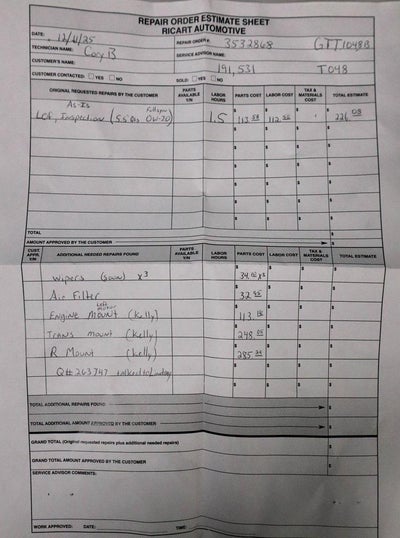 REPAIR ORDER ESTIMATE SHEET
RICART AUTOMOTIVE
DATE: 12/4/25 REPAIR ORDER #: 3532868 GTT1048B
TECHNICIAN NAME: Cory B SERVICE ADVISOR NAME:
CUSTOMER'S NAME: 191,531 T048
CUSTOMER CONTACTED: YES NO SOLD: YES NO
ORIGINAL REQUESTED REPAIRS BY THE CUSTOMER PARTS AVAILABLE Y/N LABOR HOURS PARTS COST LABOR COST TAX & MATERIALS COST TOTAL ESTIMATE
As-Is
LOF, Inspection (5.5 Qts 0W-20) 1.5 $ 113 $ 112 $ $ 226
$ $ $ $
$ $ $ $
$ $ $ $
$ $ $ $
$ $ $ $
TOTAL $
AMOUNT APPROVED BY THE CUSTOMER $
CUST. APPR. Y/N ADDITIONAL NEEDED REPAIRS FOUND PARTS AVAILABLE Y/N LABOR HOURS PARTS COST LABOR COST TAX & MATERIALS COST TOTAL ESTIMATE
Wipers x3 $ 34 x3 $ $ $
Air Filter $ 32 $ $ $
Engine Mount (Kelly) $ 113 $ $ $
Trans Mount (Kelly) $ 248 $ $ $
R Mount (Kelly) $ 285 $ $ $
Q# 263747 talked to $ $ $ $
TOTAL ADDITIONAL REPAIRS FOUND $
TOTAL ADDITIONAL AMOUNT APPROVED BY THE CUSTOMER $
GRAND TOTAL (Original requested repairs plus additional needed repairs) $
GRAND TOTAL AMOUNT APPROVED BY THE CUSTOMER $
SERVICE ADVISOR COMMENTS:
WORK APPROVED: DATE: TIME: